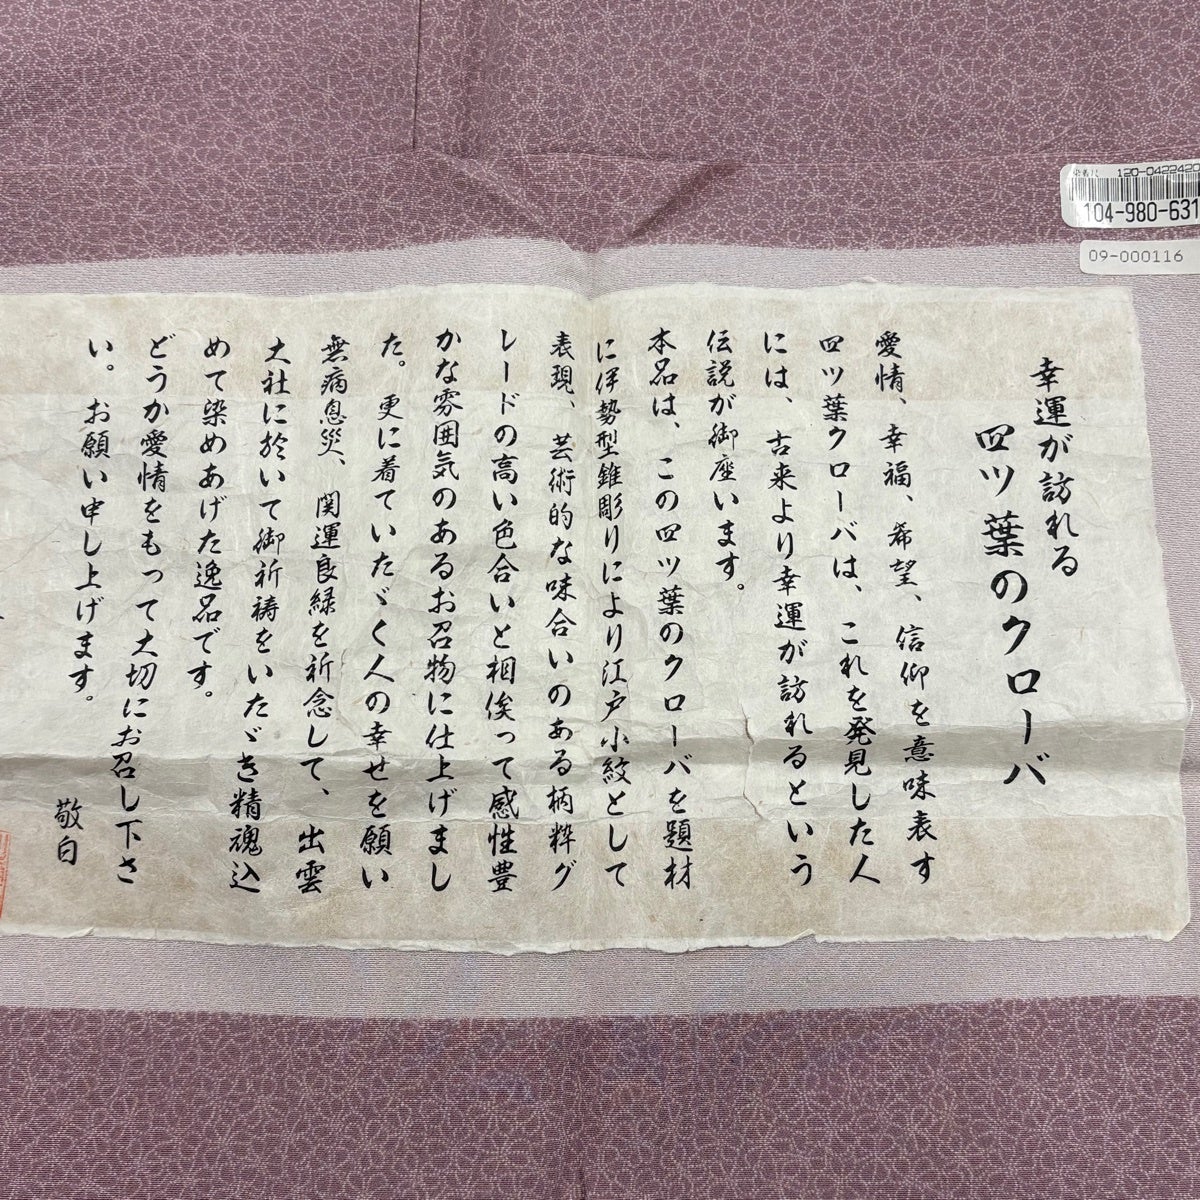 幸運が訪れる
四ツ葉のクローバ
愛情、幸福、希望、信仰を意味表す
四ツ葉クローバは、これを発見した人
には、古来より幸運が訪れるという
伝説が御座います。
本品は、この四ツ葉のクローバを題材
に伊勢型錐彫りにより江戸小紋として
表現、芸術的な味合いのある柄粋グ
レードの高い色合いと相俟って感性豊
かな雰囲気のあるお召物に仕上げまし
た。更に着ていたゞく人の幸せを願い
無病息災、関運良縁を祈念して、出雲
大社に於いて御祈祷をいたゞき精魂込
めて染めあげた逸品です。
どうか愛情をもって大切にお召し下さ
い。お願い申し上げます。
敬白
染着尺 120-0422420
104-980-631
09-000116